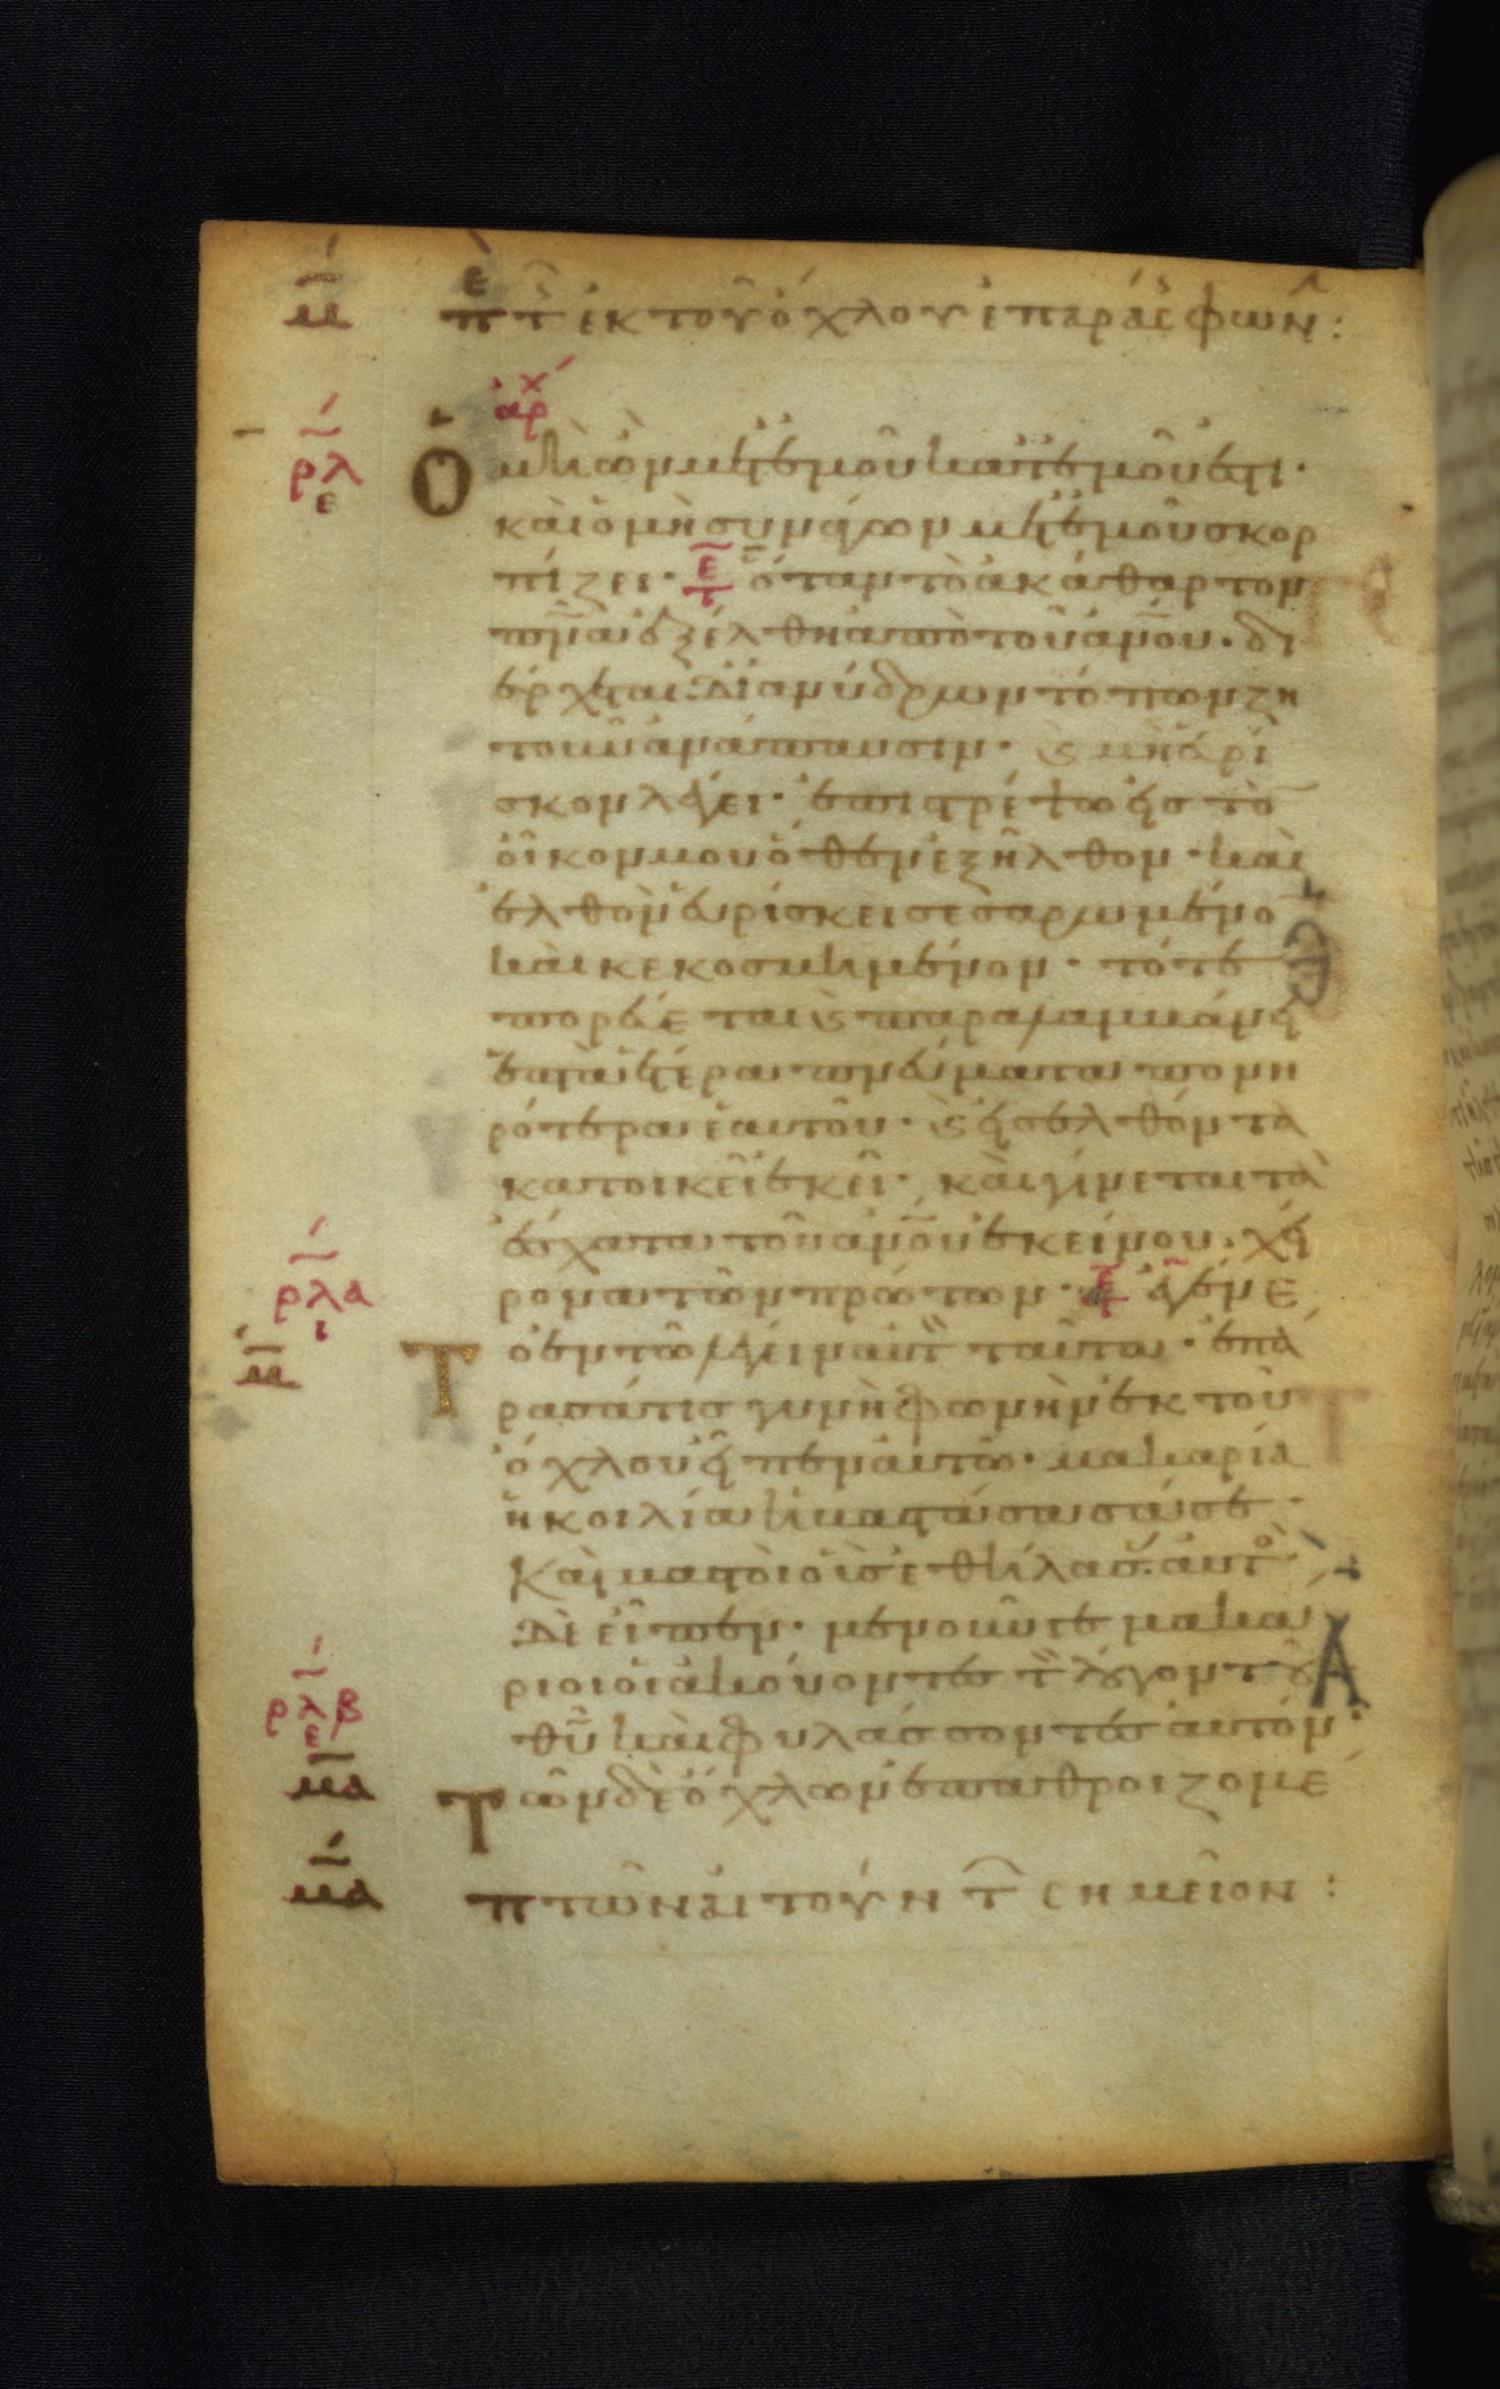 μ̅ π̅ τ̅ ἐκ τοῦ ὄχλου ἐπαράσ φων̑:
ἀρχ
ρλ ε Ὁ μὴ ὢν μετ ἐμοῦ κατ ἐμοῦ ἐστι·
καὶ ὁ μὴ συνάγων μετ ἐμοῦ σκορ
πίζει· ὅταν τὸ ἀκάθαρτον
πν̅α ἐξέλθη ἀπὸ τοῦ ἀν̅ου· δι
έρχεται δι ἀνύδρων τόπων ζη
τοῦν ἀνάπαυσιν· ϗ μὴ εὑρί
σκον λέγει· ἐπιστρέψω εἰς τὸ
οἶκον μου ὅθεν ἐξῆλθον· καὶ
ἐλθὸν εὑρίσκει σεσαρωμένο
καὶ κεκοσμημένον· τότε
πορεύεται ϗ παραλαμβάνει
ἑπτὰ ἕτερα πνεύματα πονη
ρότερα ἑαυτοῦ· ϗ εἰσελθόντα
κατοικεῖ ἐκεῖ· καὶ γίνεται τὰ
ἔσχατα τοῦ ἀν̅ου ἐκείνου· χεί
ρλα ι ρονα τῶν πρώτων· ἐγένε
μ̅ Το ἐν τῶ λέγειν αὐτ ταῦτα· ἐπά
ρασά τις γυνὴ φωνὴν ἐκ τοῦ
ὄχλου εἶπεν αὐτῶ· μακαρία
ἡ κοιλία ἡ βαστάσασά σε·
Καὶ μαστοὶ οἳς ἐθήλασας· αὐτο
δὲ εἶπεν· μενοῦν γε μακά
ριοι οἱ ἀκούοντες τ λόγον τοῦ
ρλβ ε θυ̅ καὶ φυλάσσοντες αὐτόν·
μ̅α Τῶν δὲ ὄχλων ἐπαθροιζομέ
μ̅α π̅ τῶν αἰτούν τ̑ σημεῖον: